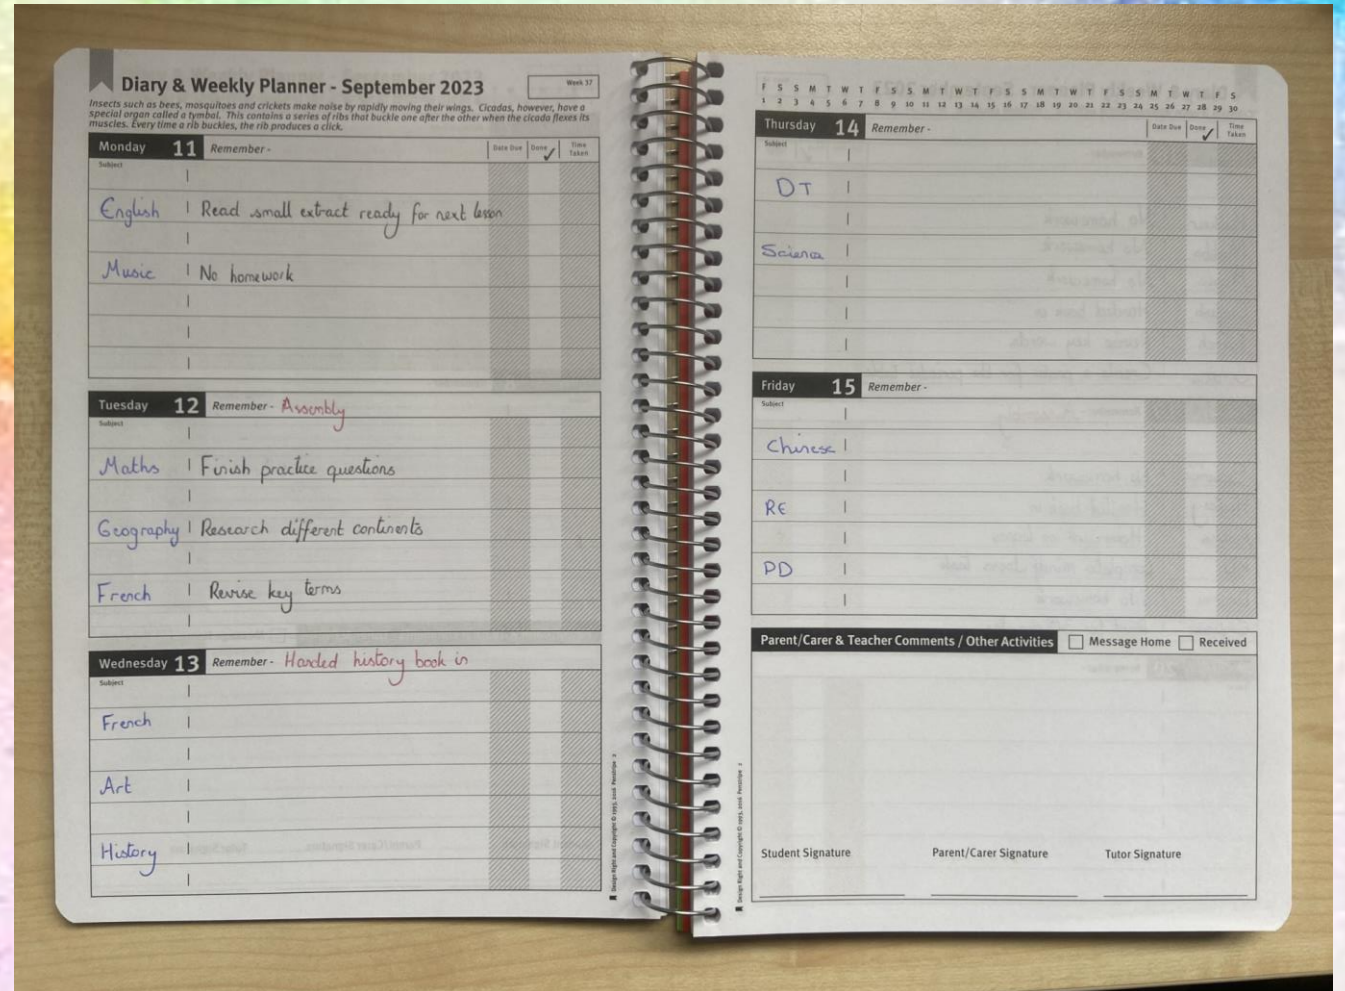 Diary & Weekly Planner - September 2023
Week 37
Insects such as bees, mosquitoes and crickets make noise by rapidly moving their wings. Cicadas, however, have a
special organ called a tymbal. This contains a series of ribs that buckle one after the other when the cicada flexes its
muscles. Every time a rib buckles, the rib produces a click.
Monday 11 Remember - Date Due Done ✓ Time Taken
Subject
English Read small extract ready for next lesson
Music No homework
Tuesday 12 Remember - Assembly
Subject
Maths Finish practice questions
Geography Research different continents
French Revise key terms
Wednesday 13 Remember - Handed history book in
Subject
French
Art
History
F S S M T W T F S S M T W T F S S M T W T F S S M T W T F S
1 2 3 4 5 6 7 8 9 10 11 12 13 14 15 16 17 18 19 20 21 22 23 24 25 26 27 28 29 30
Thursday 14 Remember - Date Due Done ✓ Time Taken
Subject
DT
Science
Friday 15 Remember -
Subject
Chinese
RE
PD
Parent/Carer & Teacher Comments / Other Activities Message Home Received
Student Signature Parent/Carer Signature Tutor Signature